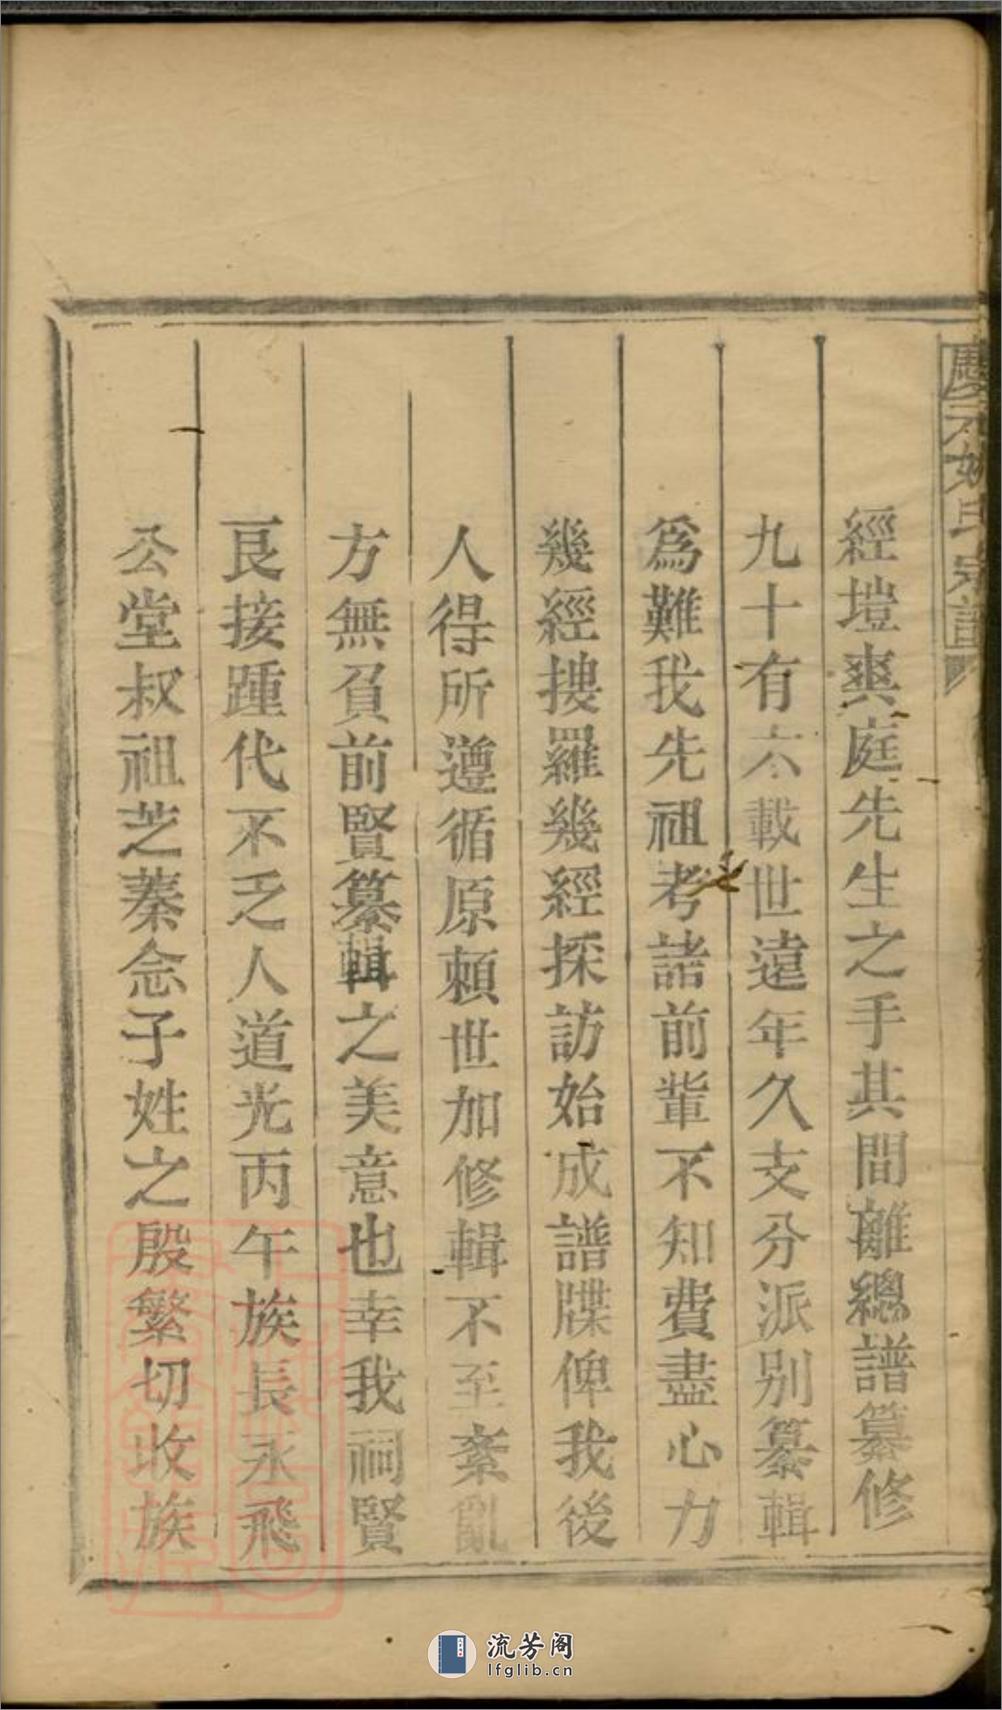 慶元姚氏宗譜
經塏爽庭先生之手其間離總譜纂修
九十有六載世遠年久支分派別纂輯
爲難我先祖考諸前輩不知費盡心力
幾經搜羅幾經採訪始成譜牒俾我後
人得所遵循原賴世加修輯不至紊亂
方無負前賢纂輯之美意也幸我祠賢
良接踵代不乏人道光丙午族長永飛
公堂叔祖芝蓁念子姓之殷繁切收族
流芳阁
lfglib.cn